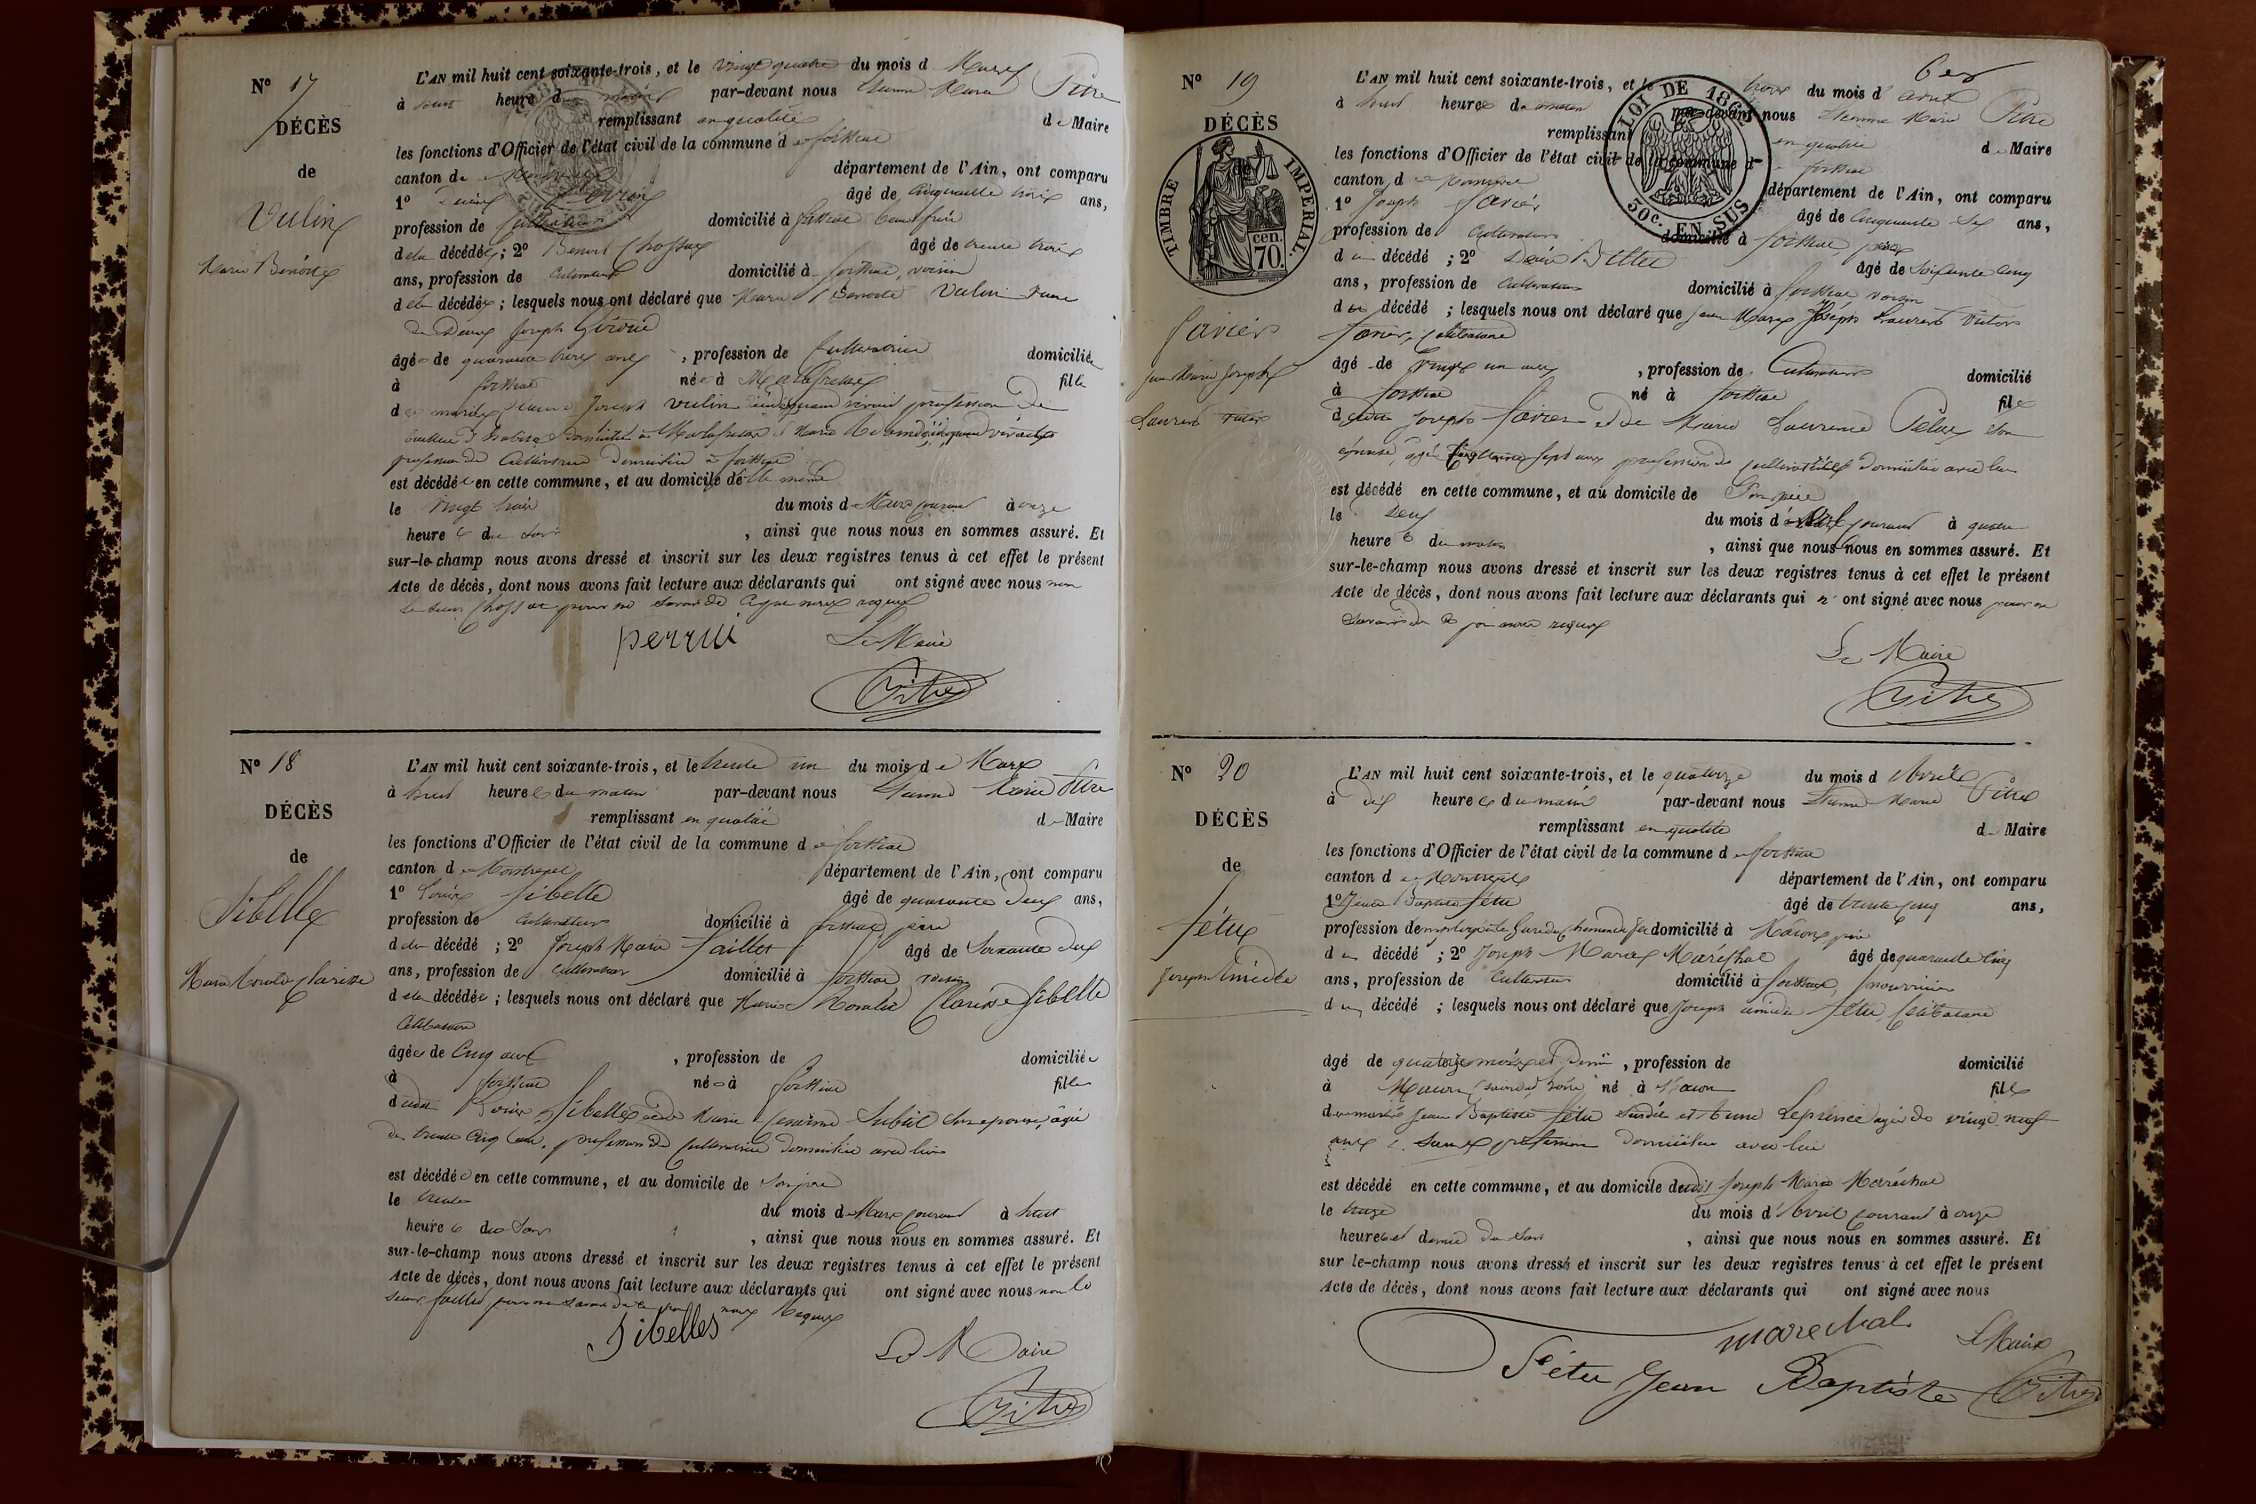 N° 17
DÉCÈS
de
Vulin
Marie Benoite
L'AN mil huit cent soixante-trois, et le vingt quatre du mois d Mars
à heure d par-devant nous Etienne Marie Pitre
remplissant en qualité de Maire
les fonctions d'Officier de l'état civil de la commune de
canton de département de l'Ain, ont comparu
1° Perrin âgé de Cinquante trois ans,
profession de domicilié à beau frère
de la décédée; 2° Benoit Chossat âgé de trente trois
ans, profession de Cultivateur domicilié à voisin
de la décédée; lesquels nous ont déclaré que Marie Benoite Vulin veuve
de Joseph
âgée de quarante trois ans, profession de Cultivatrice domiciliée
à née à Malafretaz fille
des mariés Joseph Vulin profession de
domicilié à Malafretaz et Marie
profession de Cultivatrice domiciliée à
est décédée en cette commune, et au domicile de elle même
le Vingt trois du mois de Mars courant à onze
heures du soir, ainsi que nous nous en sommes assuré. Et
sur-le-champ nous avons dressé et inscrit sur les deux registres tenus à cet effet le présent
Acte de décès, dont nous avons fait lecture aux déclarants qui ont signé avec nous non
le sieur Chossat pour ne savoir de ce requis
perrin Le Maire
Pitre
N° 18
DÉCÈS
de
Sibelle
Marie Clarisse
L'AN mil huit cent soixante-trois, et le trente un du mois de Mars
à huit heures du matin par-devant nous Etienne Marie Pitre
remplissant en qualité de Maire
les fonctions d'Officier de l'état civil de la commune de
canton de Montrevel département de l'Ain, ont comparu
1° Louis Sibelle âgé de quarante deux ans,
profession de Cultivateur domicilié à père
de la décédé; 2° Joseph Marie âgé de Soixante deux
ans, profession de Cultivateur domicilié à voisin
de la décédée; lesquels nous ont déclaré que Marie Clarisse Sibelle
Célibataire
âgée de Cinq ans, profession de domiciliée
à née à fille
dudit Louis Sibelle et de Marie son épouse, âgée
de trente cinq ans, profession de Cultivatrice domiciliée avec lui
est décédée en cette commune, et au domicile de Son père
le trente du mois de Mars courant à huit
heures du Soir, ainsi que nous nous en sommes assuré. Et
sur-le-champ nous avons dressé et inscrit sur les deux registres tenus à cet effet le présent
Acte de décès, dont nous avons fait lecture aux déclarants qui ont signé avec nous non le
sieur pour ne savoir de ce requis
Sibelles
Le Maire
Pitre
N° 19
DÉCÈS
de
TIMBRE IMPERIAL.
cen.
70.
Favier
Jean Marie Joseph
Laurent Victor
LOI DE 1862
50c. EN SUS
L'AN mil huit cent soixante-trois, et le trois du mois d' avril
à huit heures du matin par-devant nous Etienne Marie Pitre
remplissant en qualité de Maire
les fonctions d'Officier de l'état civil de la commune de
canton de département de l'Ain, ont comparu
1° Joseph Favier âgé de Cinquante ans,
profession de Cultivateur domicilié à père
du décédé; 2° âgé de Soixante Cinq
ans, profession de Cultivateur domicilié à voisin
du décédé; lesquels nous ont déclaré que Jean Marie Joseph Laurent Victor
Favier, Célibataire
âgé de Vingt un ans, profession de Cultivateur domicilié
à né à fils
dudit Joseph Favier et de Marie Laurence son
épouse, âgée sept ans profession de Cultivatrice domiciliée avec lui
est décédé en cette commune, et au domicile de Son père
le Deux du mois d' avril courant à quatre
heures du matin, ainsi que nous nous en sommes assuré. Et
sur-le-champ nous avons dressé et inscrit sur les deux registres tenus à cet effet le présent
Acte de décès, dont nous avons fait lecture aux déclarants qui n' ont signé avec nous pour ne
savoir de ce requis
Le Maire
Pitre
N° 20
DÉCÈS
de
Fétu
Joseph Amédée
L'AN mil huit cent soixante-trois, et le quatorze du mois d' Avril
à dix heures du matin par-devant nous Etienne Marie Pitre
remplissant en qualité de Maire
les fonctions d'Officier de l'état civil de la commune de
canton de Montrevel département de l'Ain, ont comparu
1° Jean Baptiste Fétu âgé de trente cinq ans,
profession de chemin de fer domicilié à Macon père
du décédé; 2° Joseph Marie Maréchal âgé de quarante cinq
ans, profession de Cultivateur domicilié à nourricier
du décédé; lesquels nous ont déclaré que Joseph Amédée Fétu, Célibataire
âgé de quatorze mois et Demi, profession de domicilié
à Macon né à Macon fils
des mariés Jean Baptiste Fétu susdit et âgée de vingt neuf
ans, Sans profession domiciliée avec lui
est décédé en cette commune, et au domicile dudit Joseph Marie Maréchal
le treize du mois d' Avril courant à onze
heures et demie du Soir, ainsi que nous nous en sommes assuré. Et
sur le-champ nous avons dressé et inscrit sur les deux registres tenus à cet effet le présent
Acte de décès, dont nous avons fait lecture aux déclarants qui ont signé avec nous
marechal Le Maire
Fétu Jean Baptiste Pitre